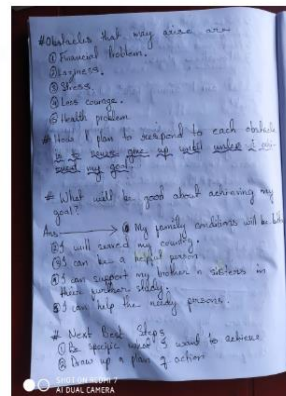 # Obstacles that may arise are
① Financial Problem.
② Laziness.
③ Stress.
④ Less courage.
⑤ Health problem
# How I plan to respond to each obstacle
is to never give up until unless I
my goal.
# What will be good about achieving my
goal?
Ans: ① My family conditions will be
② I will served my country.
③ I can be a helpful person.
④ I can support my brother n sisters in
their further study.
⑤ I can help the needy persons.
# Next Best Steps
① Be specific what I want to achieve
② Draw up a plan of action
SHOT ON REDMI 7
AI DUAL CAMERA